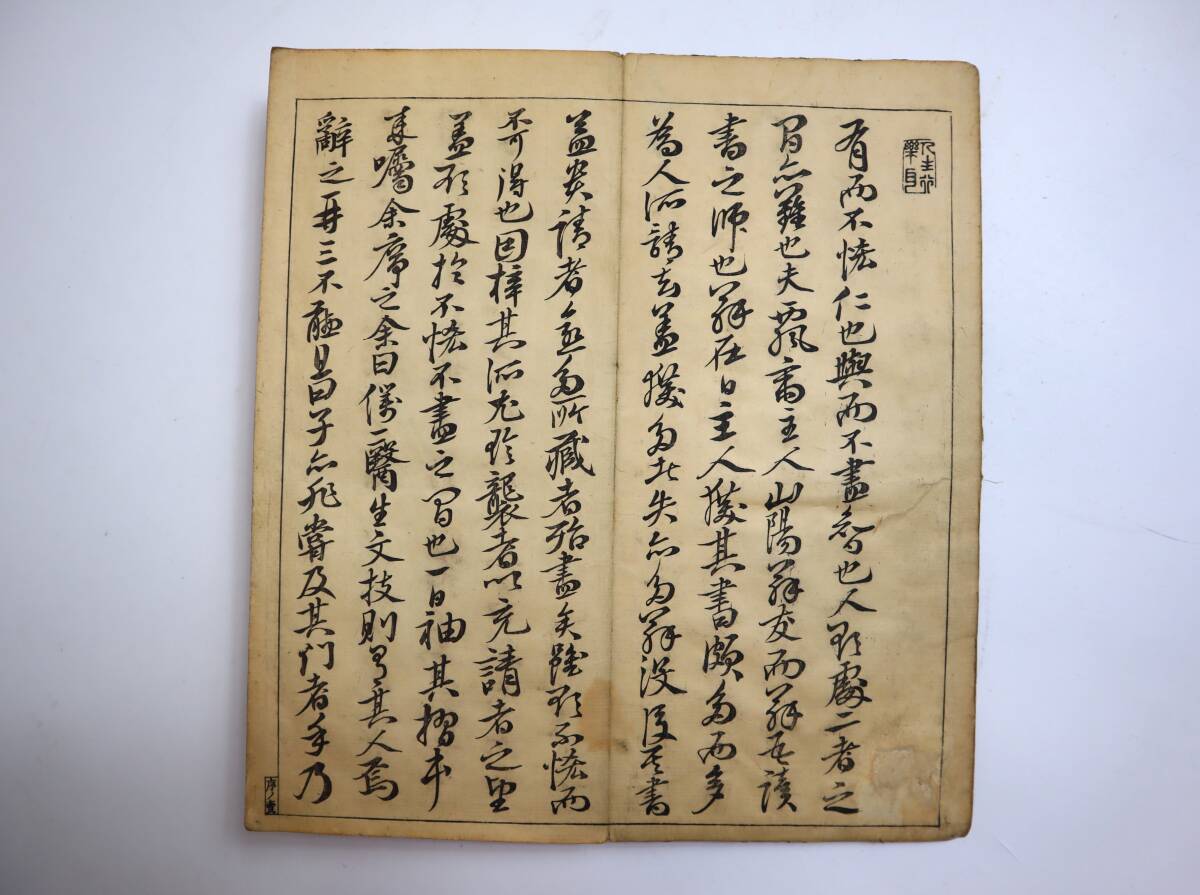 有而不悋仁也與而不盡智也人欲處二者之
間亦難也夫飄齋主人山陽翁友而翁亦讀
書之師也翁在日主人獲其書頗多而多
為人所請去蓋獲多者失亦多翁沒後其書
益貴請者益多所藏者殆盡矣雖欲不悋而
不可得也因梓其所尤珍襲者以充請者之望
蓋欲處於不悋不盡之間也一日袖其摺本
來囑余序之余曰僕一醫生文技則有其人焉
辭之再三不聽且曰子亦非嘗及其門者乎乃
序ノ壹